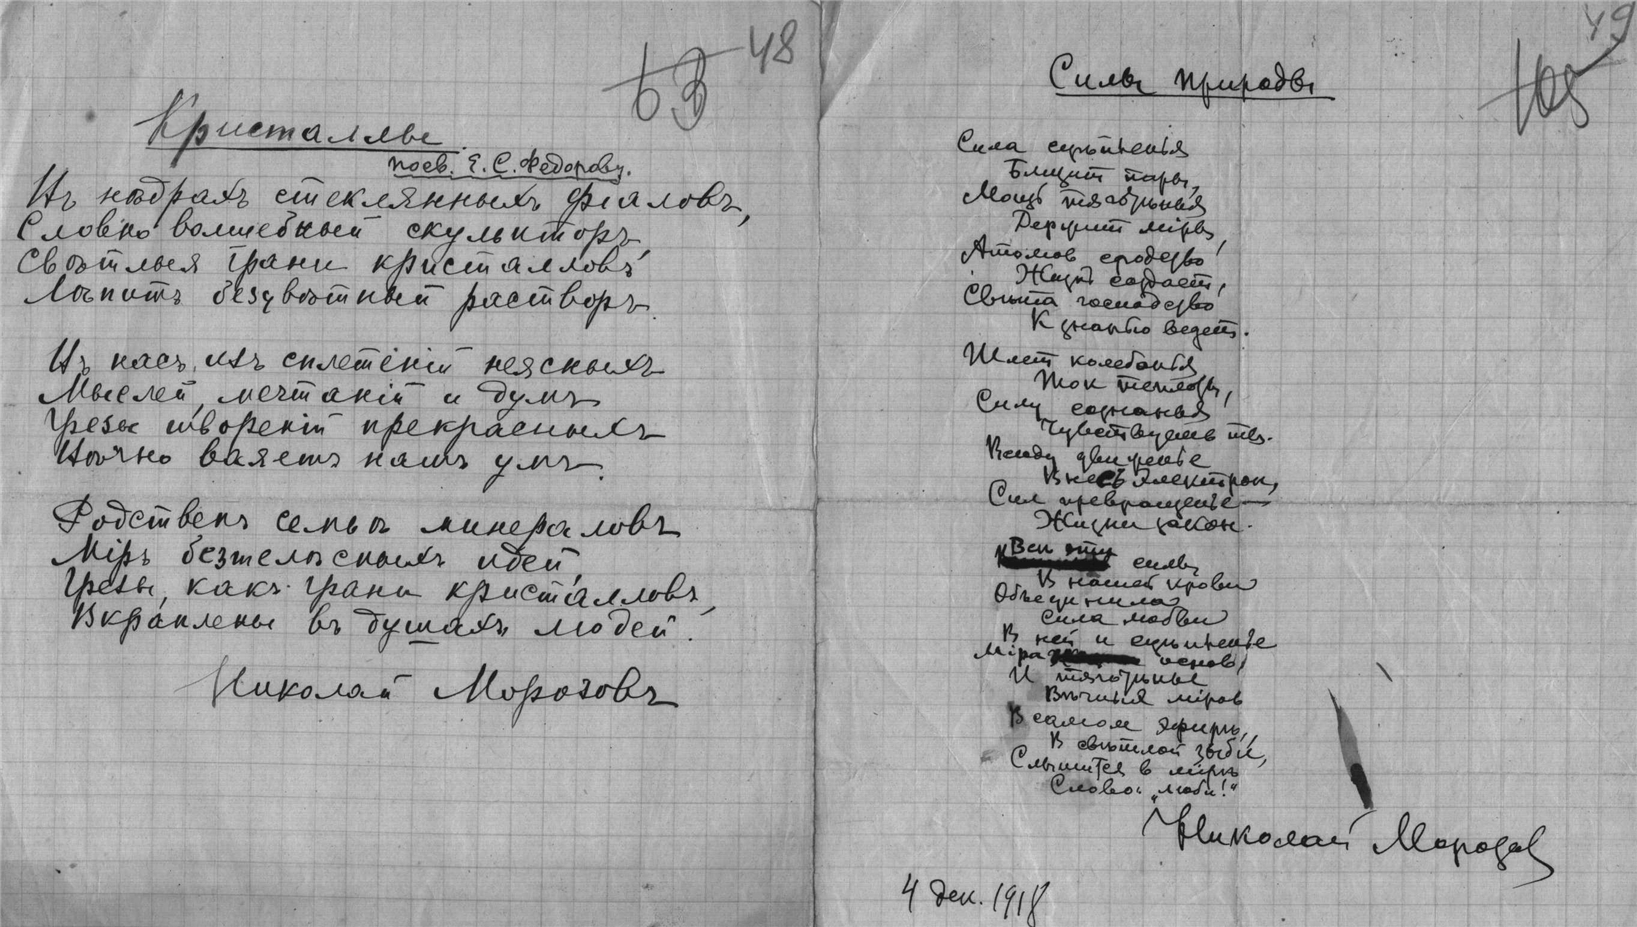 48
63
Кристаллы.
посв. Е. С. Федорову.
Въ нѣдрахъ стеклянныхъ фіаловъ,
Словно волшебный скульпторъ,
Свѣтлыя грани кристалловъ
Лѣпитъ безцвѣтный растворъ.
Въ насъ, изъ сплетеній неясныхъ
Мыслей, мечтаній и думъ
Грезы твореній прекрасныхъ
Вѣчно ваяетъ нашъ умъ.
Родственъ семьѣ минераловъ
Міръ безтелѣсныхъ идей,
Грезы, какъ грани кристалловъ,
Вкраплены въ душахъ людей.
Николай Морозовъ
49
105
Силы природы
Сила сцѣпленья
Мощь тяготѣнья
Держит міры,
Атомов сродство
Жизнь создает,
Свѣта господство
К знанью ведет.
Шлет колебанья
Ток теплоты,
Силу сознанья
Чувствуешь ты.
Всюду движенье
Внес электрон,
Сил превращенье —
Жизни закон.
Всѣ эти силы
В нашей крови
Объединила
Сила любви
В ней и сцѣпленье
Міра основ,
И тяготѣнье
Вѣчныя міров
В самом эфирѣ,
В свѣтлой зыби,
Слышится в мірѣ
Слово: „люби!"
Николай Морозов
4 дек. 1918